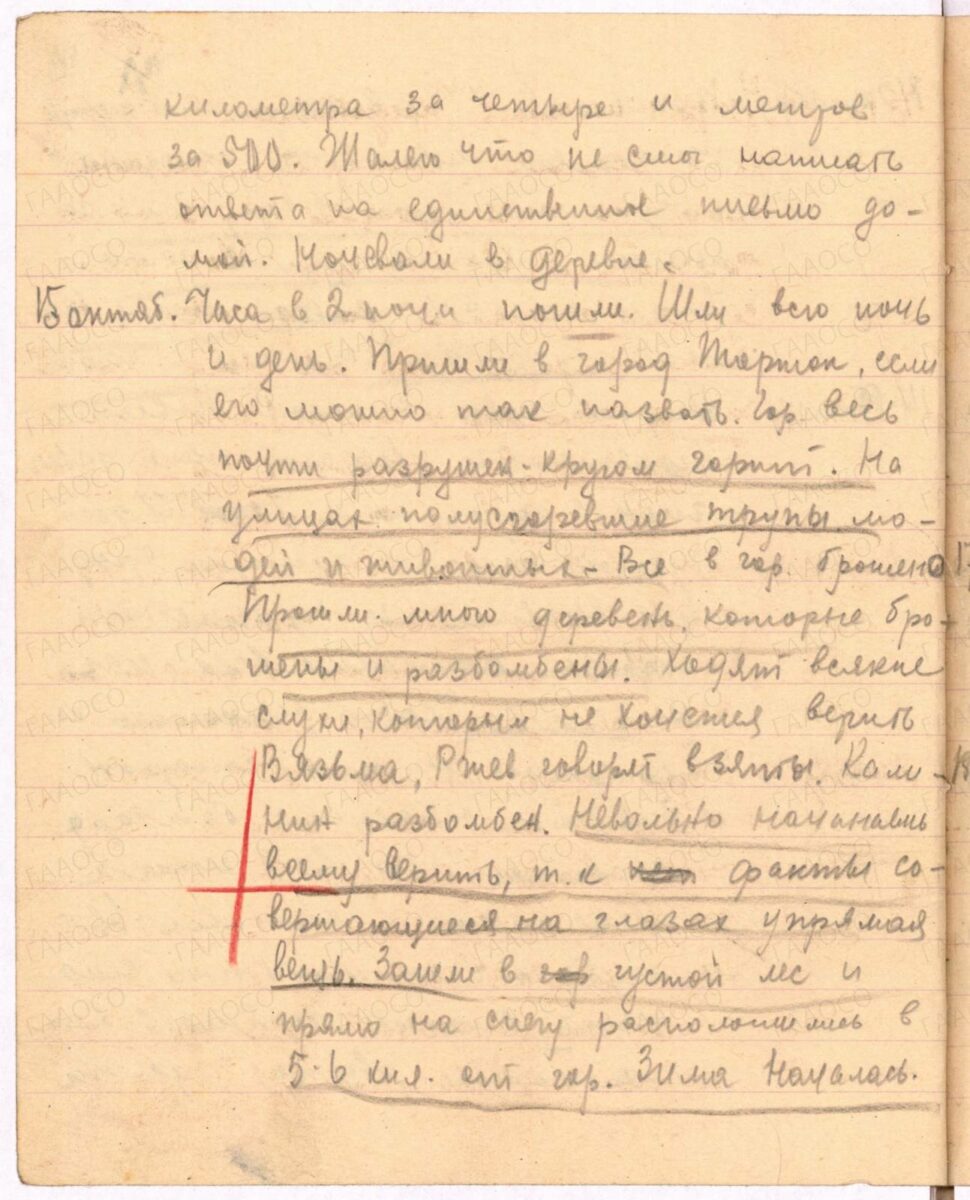 километра за четыре и метров
за 500. Жалею что не смог написать
ответа на единственное письмо до-
мой. Ночевали в деревне.
15 октяб. Часа в 2 ночи пошли. Шли всю ночь
и день. Пришли в город Торжок, если
его можно так назвать. Гор. весь
почти разрушен - кругом горит. На
улицах полусгоревшие трупы лю-
дей и животных - Все в гор. брошено
Прошли много деревень, которые бро-
шены и разбомбены. Ходят всякие
слухи, которым не хочется верить
Вязьма, Ржев говорят взяты. Кали-
нин разбомбен. Невольно начинаешь
всему верить, т.к факты со-
вершающиеся на глазах упрямая
вещь. Зашли в густой лес и
прямо на снегу расположились в
5-6 кил. от гор. Зима началась.
ГААОСО